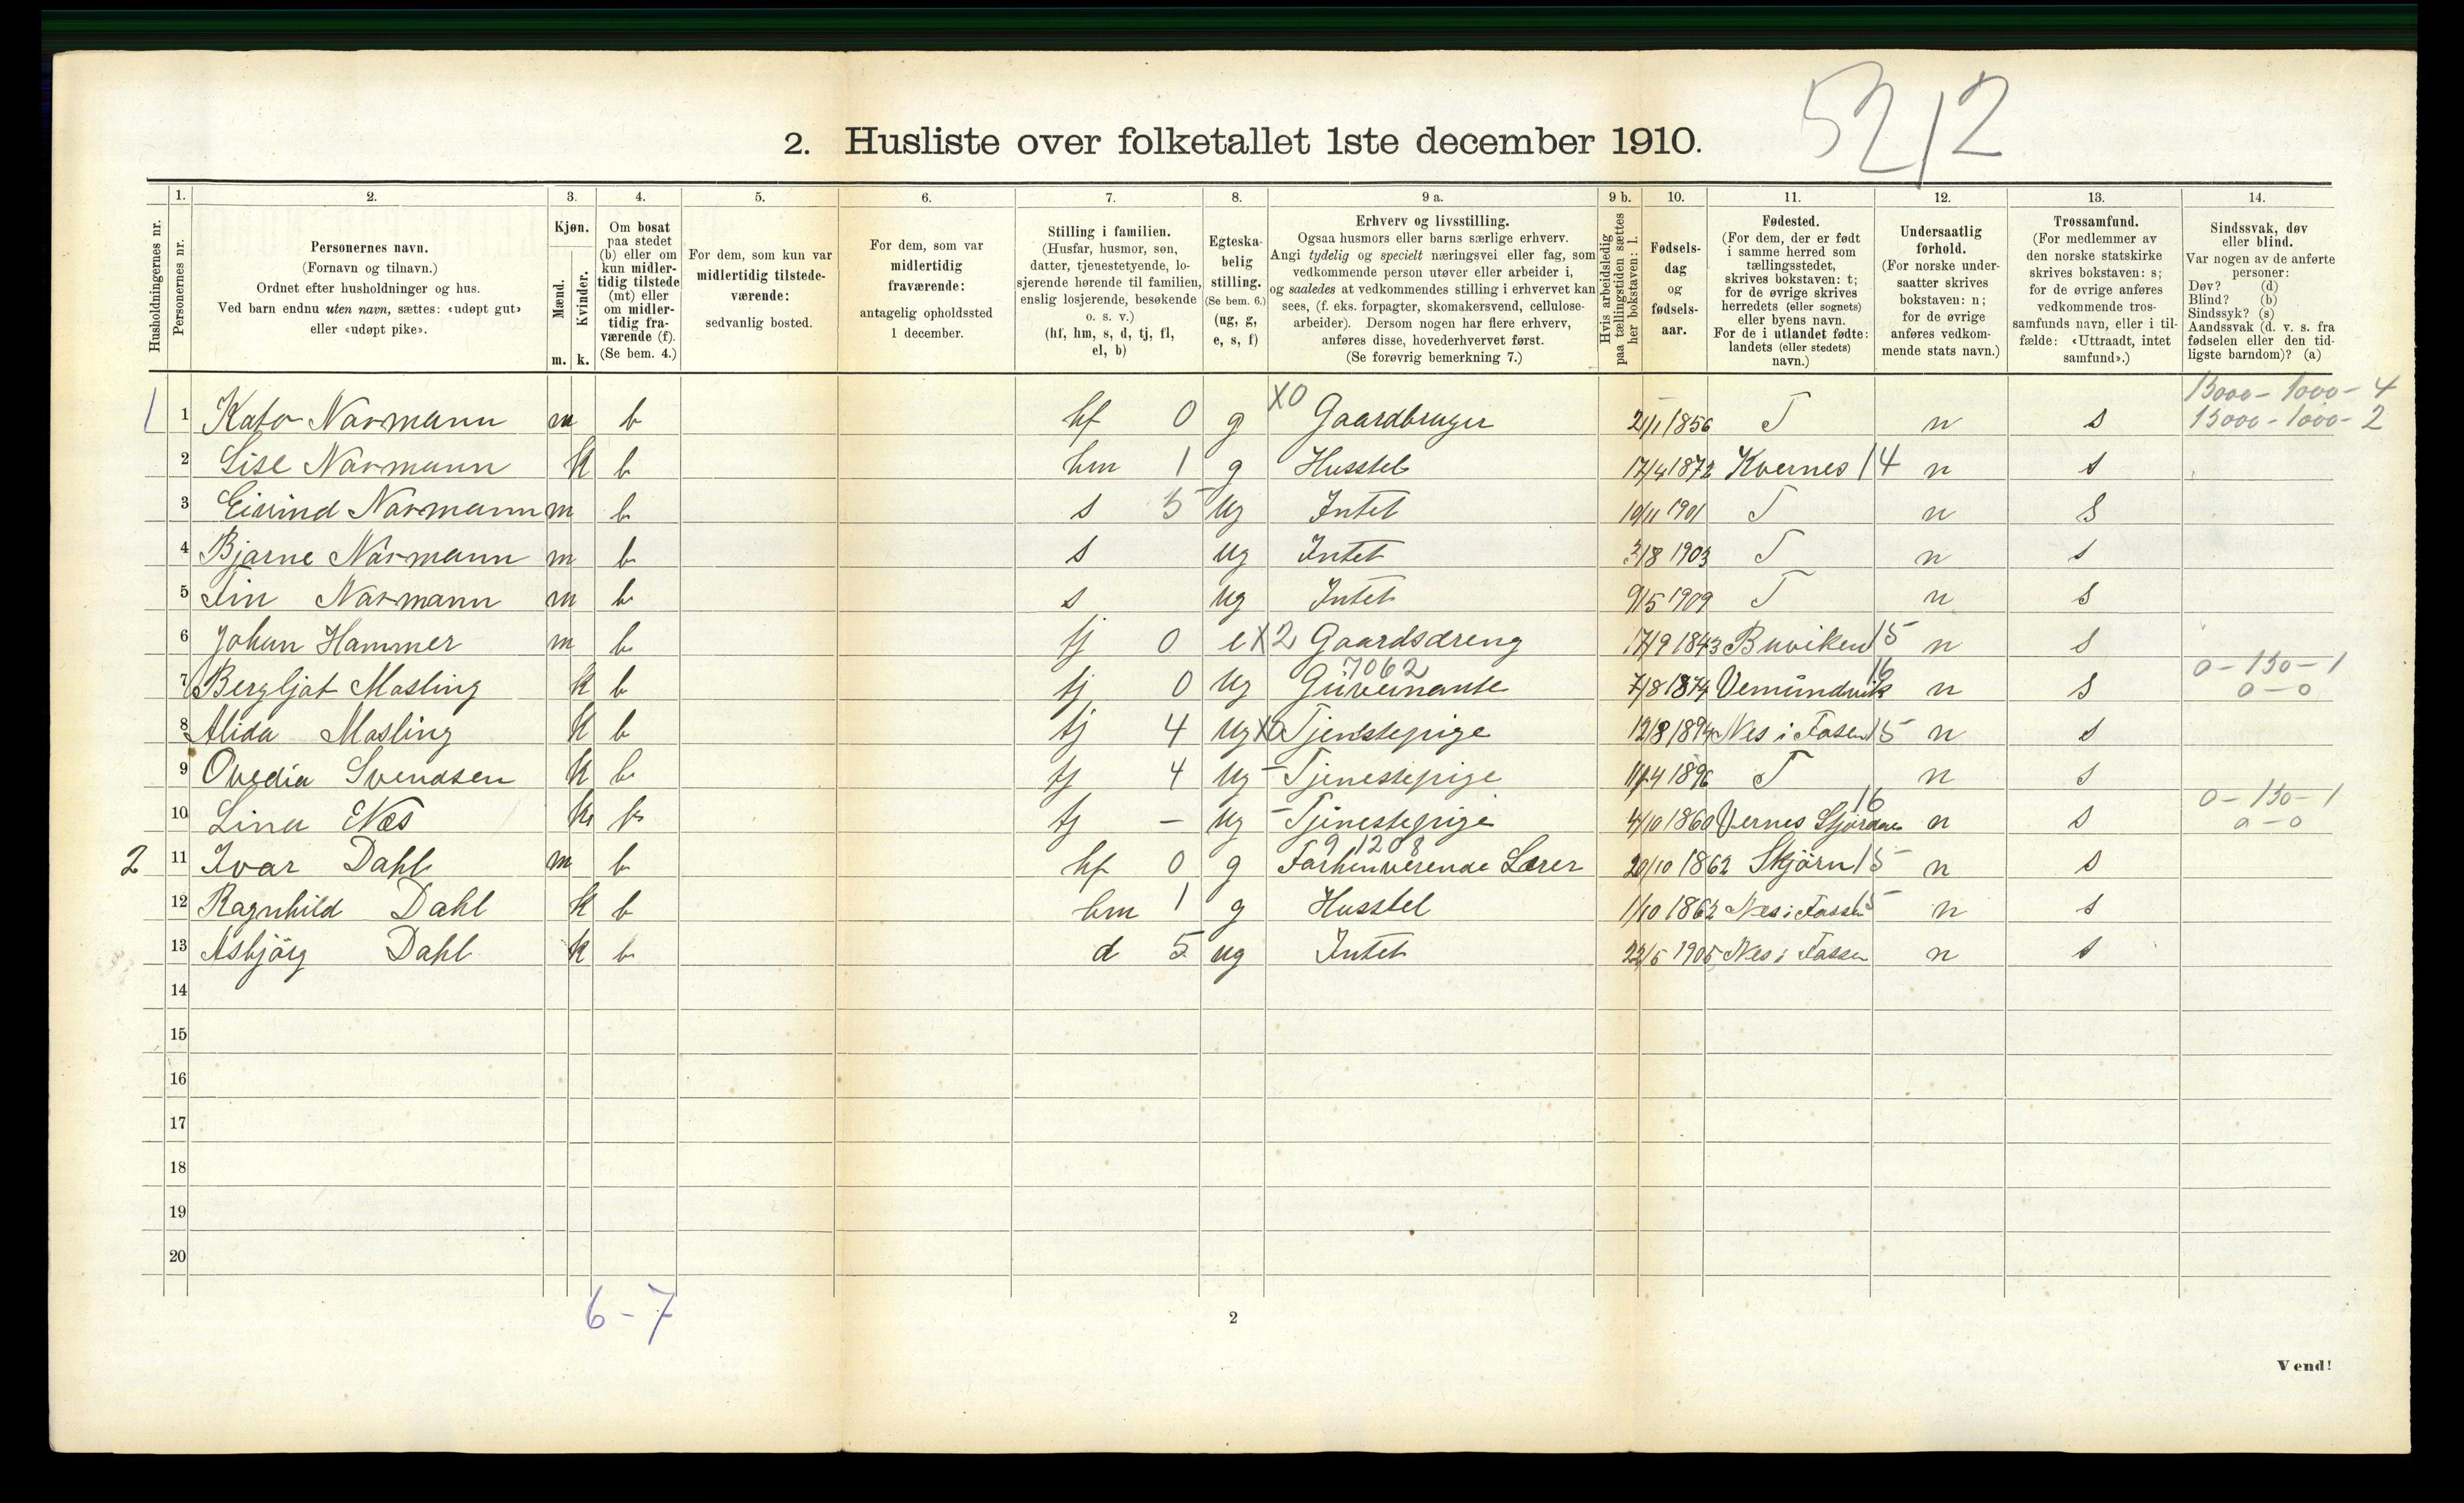 5212
2. Husliste over folketallet 1ste december 1910.
Husholdningernes nr.
1. Personernes nr.
2. Personernes navn. (Fornavn og tilnavn.) Ordnet efter husholdninger og hus. Ved barn endnu uten navn, sættes: «udøpt gut» eller «udøpt pike».
3. Kjøn. Mænd. m. Kvinder. k.
4. Om bosat paa stedet (b) eller om kun midlertidig tilstede (mt) eller om midlertidig fraværende (f). (Se bem. 4.)
5. For dem, som kun var midlertidig tilstedeværende: sedvanlig bosted.
6. For dem, som var midlertidig fraværende: antagelig opholdssted 1 december.
7. Stilling i familien. (Husfar, husmor, søn, datter, tjenestetyende, losjerende hørende til familien, enslig losjerende, besøkende o. s. v.) (hf, hm, s, d, tj, fl, el, b)
8. Egteskabelig stilling. (Se bem. 6.) (ug, g, e, s, f)
9 a. Erhverv og livsstilling. Ogsaa husmors eller barns særlige erhverv. Angi tydelig og specielt næringsvei eller fag, som vedkommende person utøver eller arbeider i, og saaledes at vedkommendes stilling i erhvervet kan sees, (f. eks. forpagter, skomakersvend, cellulosearbeider). Dersom nogen har flere erhverv, anføres disse, hovederhvervet først. (Se forøvrig bemerkning 7.)
9 b. Hvis arbeidsledig paa tællingstiden sættes her bokstaven: l.
10. Fødselsdag og fødselsaar.
11. Fødested. (For dem, der er født i samme herred som tællingsstedet, skrives bokstaven: t; for de øvrige skrives herredets (eller sognets) eller byens navn. For de i utlandet fødte: landets (eller stedets) navn.)
12. Undersaatlig forhold. (For norske undersaatter skrives bokstaven: n; for de øvrige anføres vedkommende stats navn.)
13. Trossamfund. (For medlemmer av den norske statskirke skrives bokstaven: s; for de øvrige anføres vedkommende trossamfunds navn, eller i tilfælde: «Uttraadt, intet samfund».)
14. Sindssvak, døv eller blind. Var nogen av de anførte personer: Døv? (d) Blind? (b) Sindssyk? (s) Aandssvak (d. v. s. fra fødselen eller den tidligste barndom)? (a)
15000 - 1000 - 4
1 1 Kato Normann m b hf 0 g X0 Gaardbruger 2/1 1856 T n s 15000 - 1000 - 2
2 Lise Normann k b hm 1 g Husstel 17/4 1872 Kvernes 14 n s
3 Eivind Normann m b s 5 ug Intet 10/11 1901 T n s
4 Bjarne Normann m b s ug Intet 3/8 1903 T n s
5 Fin Normann m b s ug Intet 9/5 1909 T n s
6 Johan Hammer m b tj 0 e X2 Gaardsdreng 17/9 1843 Buviken 15 n s
7062 16 0 - 150 - 1
7 Bergljot Mosling k b tj 0 ug Guvernante 7/8 1874 Vemundvik n s 0 - 0
8 Alida Mosling k b tj 4 ug Tjenstepige 12/8 1894 Nes i Fosen 15 n s
9 Ovedia Svendsen k b tj 4 ug - Tjenestepige 11/4 1896 T n s
16 0 - 150 - 1
10 Lina Næs k b tj - ug - Tjenestepige 4/10 1860 Vernes Stjørdalen n s 0 - 0
9 1208
2 11 Ivar Dahl m b hf 0 g Forhenverende Lærer 20/10 1862 Skjörn 15 n s
12 Ragnhild Dahl k b hm 1 g Husstel 1/10 1862 Nes i Fossen 15 n s
13 Asbjörg Dahl k b d 5 ug Intet 22/6 1905 Nes i Fossen n s
14
15
16
17
18
19
20
6 - 7
2
Vend!